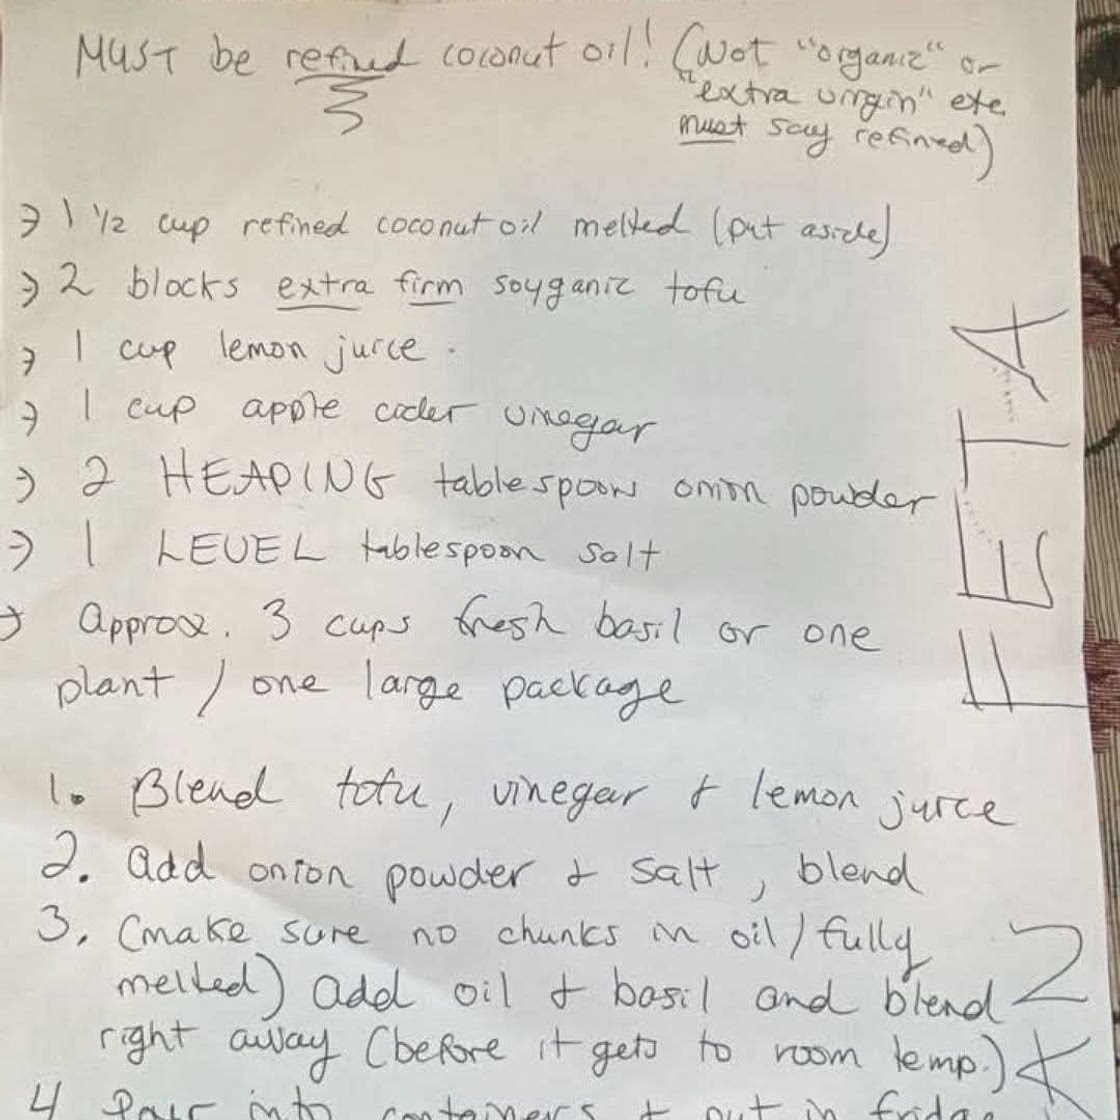 MUST be refined coconut oil! (Not "organic" or
"extra virgin" etc,
must say refined)
→ 1 1/2 cup refined coconut oil melted (put aside)
→ 2 blocks extra firm soyganic tofu
→ 1 cup lemon juice.
→ 1 cup apple cider vinegar
→ 2 HEAPING tablespoons onion powder
→ 1 LEVEL tablespoon salt
→ Approx. 3 cups fresh basil or one
plant / one large package
FETA
1. Blend tofu, vinegar + lemon juice
2. Add onion powder + salt, blend
3. (make sure no chunks in oil/fully
melted) Add oil + basil and blend
right away (before it gets to room temp.)
4 Pour into containers + put in fridge